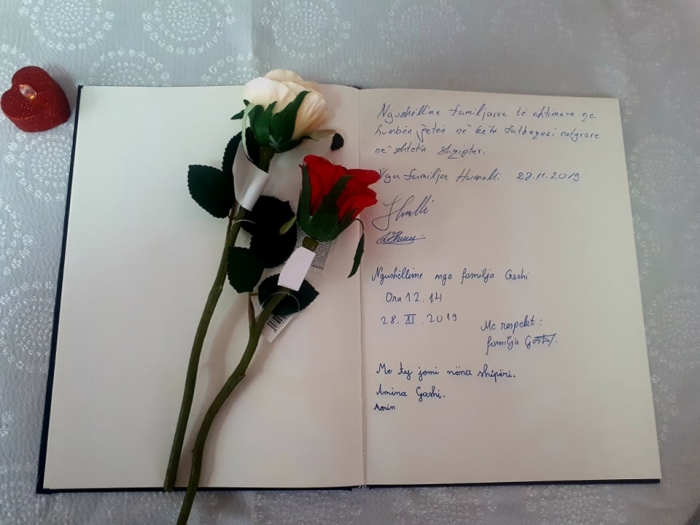 Ngushëllime familjarve të viktimave qe
humbën jetën në këte fatkeqesi natyrore
në shtetin shqiptar.
Nga familja Humolli. 27.11.2019
Ngushëllime nga familja Gashi
Ora 12.14
28.XI.2019
Me respekt:
familja Gashi.
Me ty jemi nëna shqipëri.
Amina Gashi.